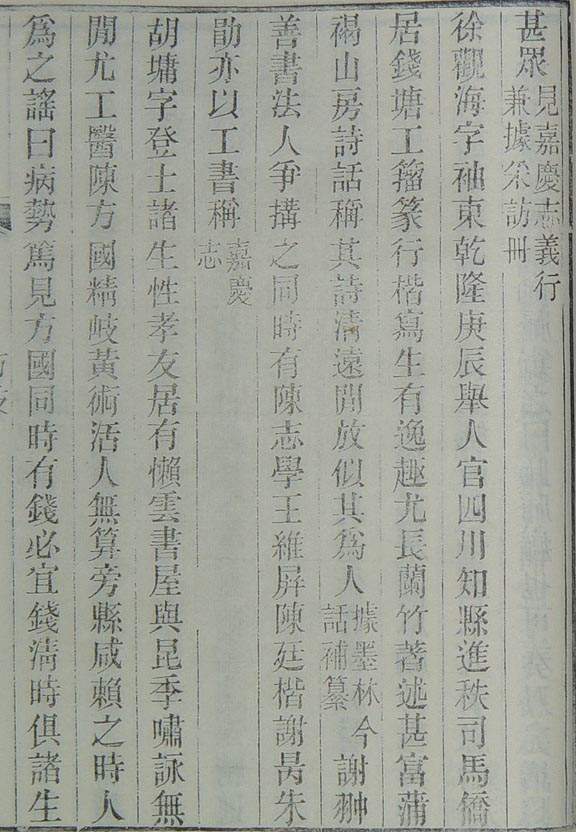 甚眾見嘉慶志義行兼據采訪冊
徐觀海字袖東乾隆庚辰舉人官四川知縣進秩司馬僑
居錢塘工籀篆行楷寫生有逸趣尤長蘭竹著述甚富蒲
褐山房詩話稱其詩清遠閒放似其爲人據墨林話補纂今謝翀
善書法人爭搆之同時有陳志學王維屏陳廷楷謝昺朱
勛亦以工書稱嘉慶志
胡墉字登士諸生性孝友居有懶雲書屋與昆季嘯詠無
閒尤工醫陳方國精岐黃術活人無算旁縣咸賴之時人
爲之謠曰病勢篤見方國同時有錢必宜錢清時俱諸生